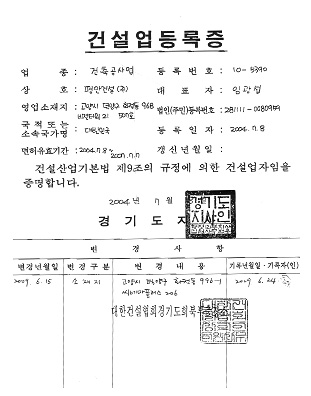 건설업등록증
업 종 : 건축공사업 등 록 번 호 : 10-5390
상 호 : 평안건설(주) 대 표 자 : 임관섭
영업소재지 : 고양시 덕양구 화정동 968
법인(주민)등록번호 : 281111-0080959
국적 또는
소속국가명 : 대한민국 등 록 일 자 : 2004.7.8
면허유효기간 : 2004.7.8 ~ 2007.7.7 갱신년월일 :
건설산업기본법 제9조의 규정에 의한 건설업자임을
증명합니다.
2004 년 7 월
경 기 도 지
변 경 사 항
변경년월일 변경구분 변 경 내 용 기록년월일·기록자(인)
2009. 6. 15 소재지 고양시 덕양구 화정동 996-1 2009. 6. 24
씨네마플러스 206
대한건설협회경기도회북부